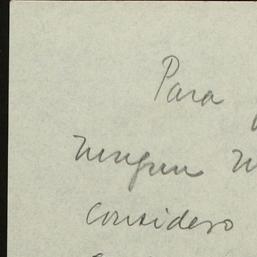 Para
ningun
considero